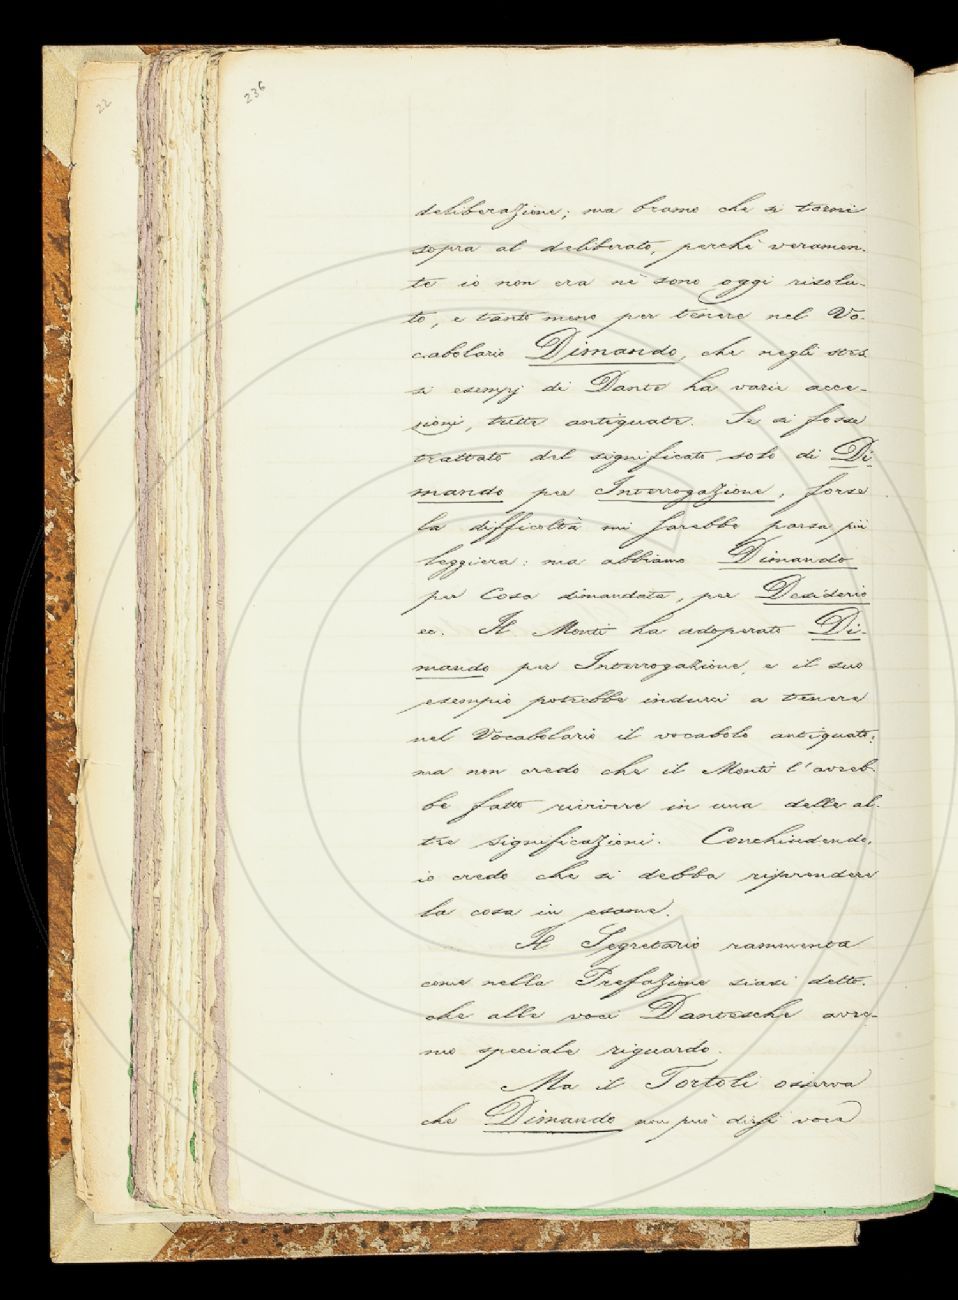 22
236
deliberazione; ma bramo che si torni
sopra al deliberato, perchè veramen-
te io non era nè sono oggi risolu-
to, e tanto meno per tenere nel Vo-
cabolario Dimando, che negli stes-
si esempj di Dante ha varie acce-
zioni, tutte antiquate. Se si fosse
trattato del significato solo di Di-
mando per Interrogazione, forse
la difficoltà mi sarebbe parsa più
leggiera: ma abbiamo Dimando
per Cosa dimandata, per Desiderio
ec. Il Monti ha adoperato Di-
mando per Interrogazione, e il suo
esempio potrebbe indurci a tenere
nel Vocabolario il vocabolo antiquato;
ma non credo che il Monti l'avreb-
be fatto rivivere in una delle al-
tre significazioni. Conchiudendo,
io credo che si debba riprendere
la cosa in esame.
Il Segretario rammenta
come nella Prefazione siasi detto
che alle voci Dantesche avre-
mo speciale riguardo.
Ma il Tortoli osserva
che Dimando non può dirsi voce